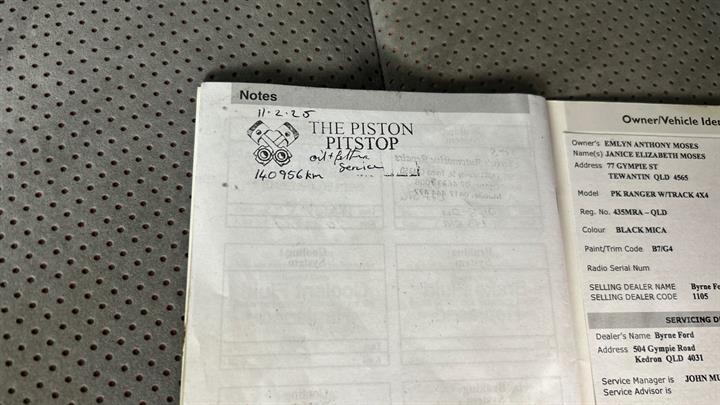 Notes
11.2.25
THE PISTON
PITSTOP
oil + filter
service
140956km
Owner/Vehicle Iden
Owner's EMLYN ANTHONY MOSES
Name(s) JANICE ELIZABETH MOSES
Address 77 GYMPIE ST
TEWANTIN QLD 4565
Model PK RANGER W/TRACK 4X4
Reg. No. 435MRA – QLD
Colour BLACK MICA
Paint/Trim Code B7/G4
Radio Serial Num
SELLING DEALER NAME Byrne Fo
SELLING DEALER CODE 1105
SERVICING D
Dealer's Name Byrne Ford
Address 504 Gympie Road
Kedron QLD 4031
Service Manager is JOHN MU
Service Advisor is